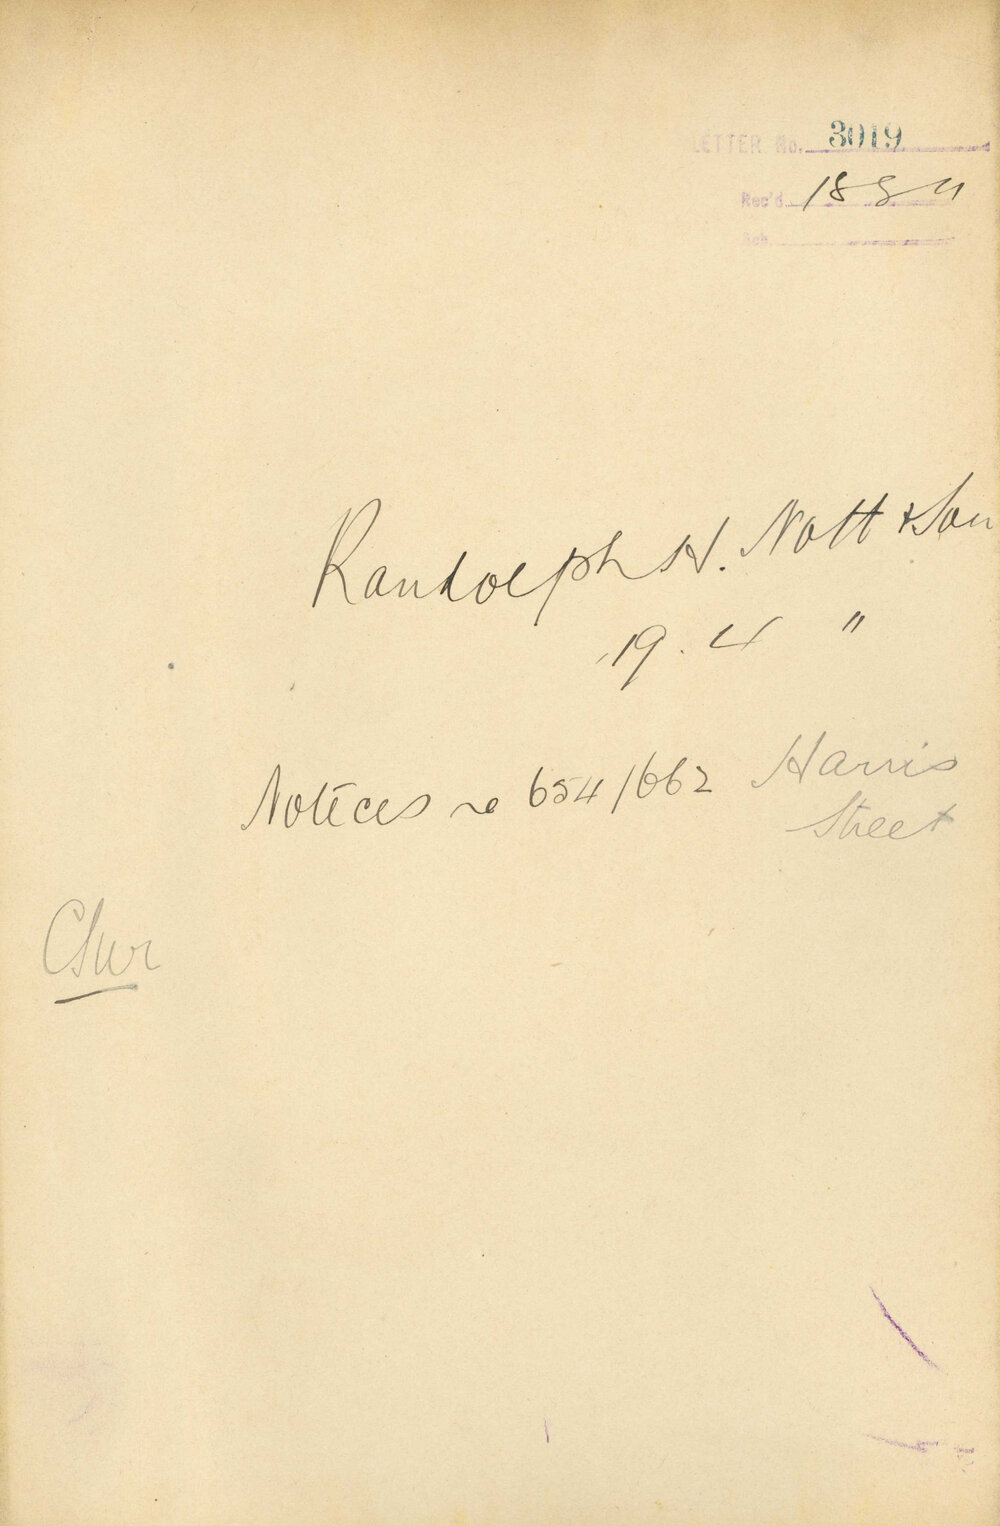 LETTER No. 3019
Rec'd
Randolph H. Nott & Son
19. 4 "
Notices re 654/662 Harris
Street